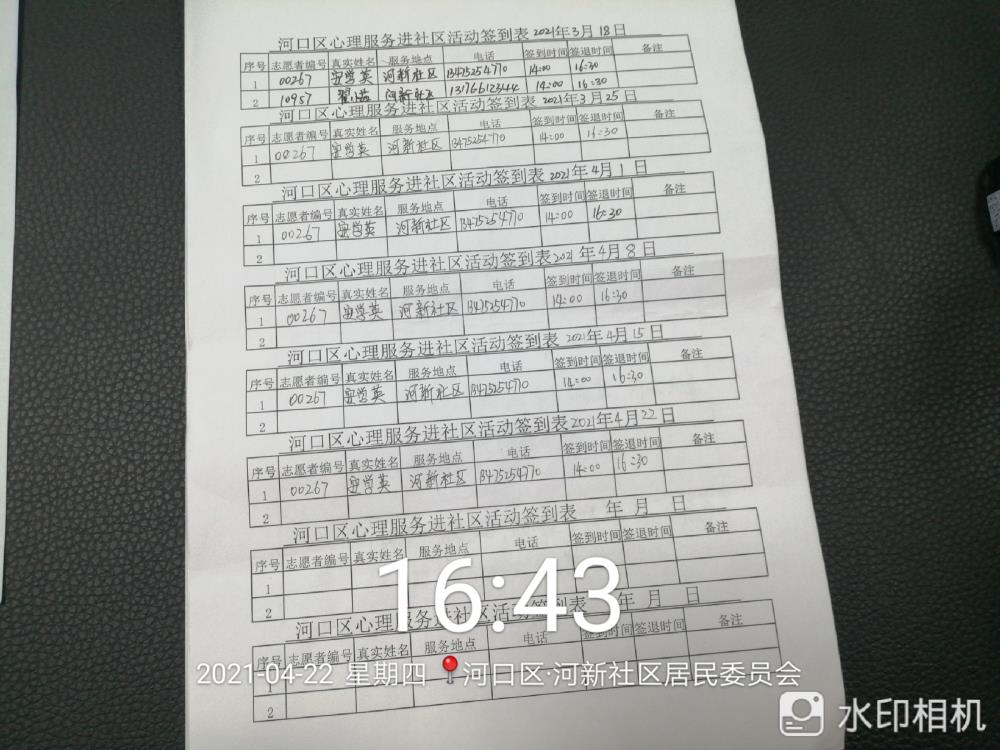 河口区心理服务进社区活动签到表 2021年3月18日
序号 志愿者编号 真实姓名 服务地点 电话 签到时间 签退时间 备注
1 00267 安学英 河新社区 13475254770 14:00 16:30
2 10957 河新社区 13176612344 14:00 16:30
河口区心理服务进社区活动签到表 2021年3月25日
序号 志愿者编号 真实姓名 服务地点 电话 签到时间 签退时间 备注
1 00267 安学英 河新社区 13475254770 14:00 16:30
2
河口区心理服务进社区活动签到表 2021年4月1日
序号 志愿者编号 真实姓名 服务地点 电话 签到时间 签退时间 备注
1 00267 安学英 河新社区 13475254770 14:00 16:30
2
河口区心理服务进社区活动签到表 2021年4月8日
序号 志愿者编号 真实姓名 服务地点 电话 签到时间 签退时间 备注
1 00267 安学英 河新社区 13475254770 14:00 16:30
2
河口区心理服务进社区活动签到表 2021年4月15日
序号 志愿者编号 真实姓名 服务地点 电话 签到时间 签退时间 备注
1 00267 安学英 河新社区 13475254770 14:00 16:30
2
河口区心理服务进社区活动签到表 2021年4月22日
序号 志愿者编号 真实姓名 服务地点 电话 签到时间 签退时间 备注
1 00267 安学英 河新社区 13475254770 14:00 16:30
2
河口区心理服务进社区活动签到表 年 月 日
序号 志愿者编号 真实姓名 服务地点 电话 签到时间 签退时间 备注
1
2
16:43
河口区心理服务进社区活动签到表 年 月 日
序号 志愿者编号 真实姓名 服务地点 电话 签到时间 签退时间 备注
1
2021-04-22 星期四 河口区·河新社区居民委员会
2
水印相机